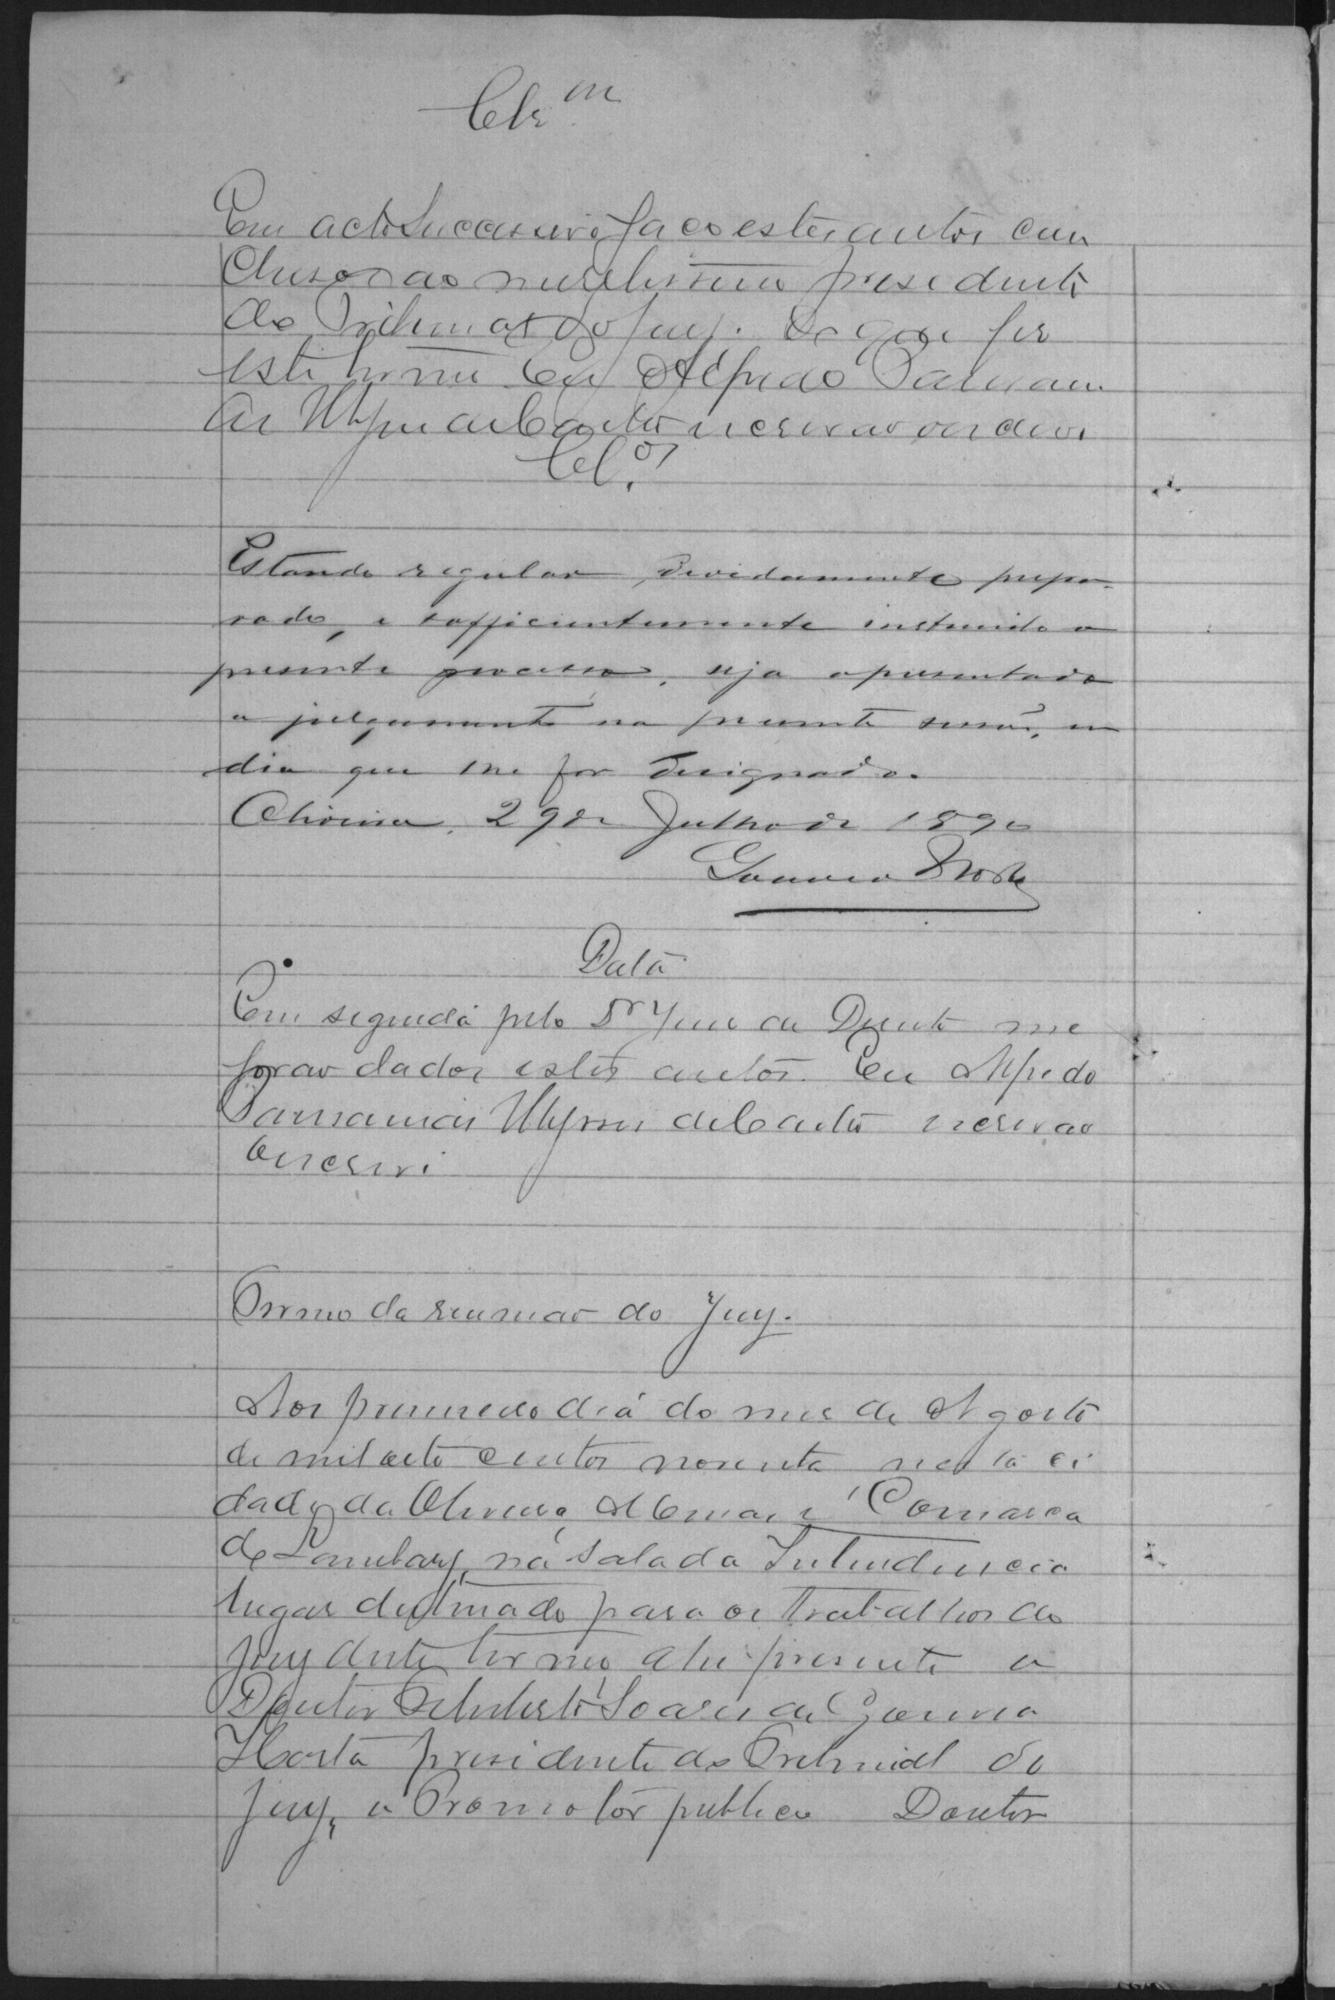 Clsm
Em acto successivo faço estes autos con
clusos ao meretissimo presidente
do Tribunal do Jury. Do que fiz
este termo Eu Alfredo Pausani
as Ulysses de Castro escrivao
Cl.os
Estando regular, devidamente prepa-
rado, e sufficientemente instruido o
presente processo, seja apresentado
a julgamento na presente sessão, em
dia que me for designado.
Oliveira, 29 de Julho de 1890
Gouvea Horta
Data
Em seguida pelo Dr Juiz de Direito me
forao dados estes autos. Eu Alfredo
Pausanias Ulysses de Castro escrivao
o escrevi
Termo da reuniao do Jury.
Aos primeiro dia do mez de Agosto
de mil oito centos noventa nesta ci
dade da Oliveira, Comarca
do Lambary, na sala da Intendencia
lugar destinado para os trabalhos do
Jury deste termo, ahi presente o
Doutor Soares de Gouvea
Horta presidente do Tribunal do
Jury, o Promotor publico Doutor